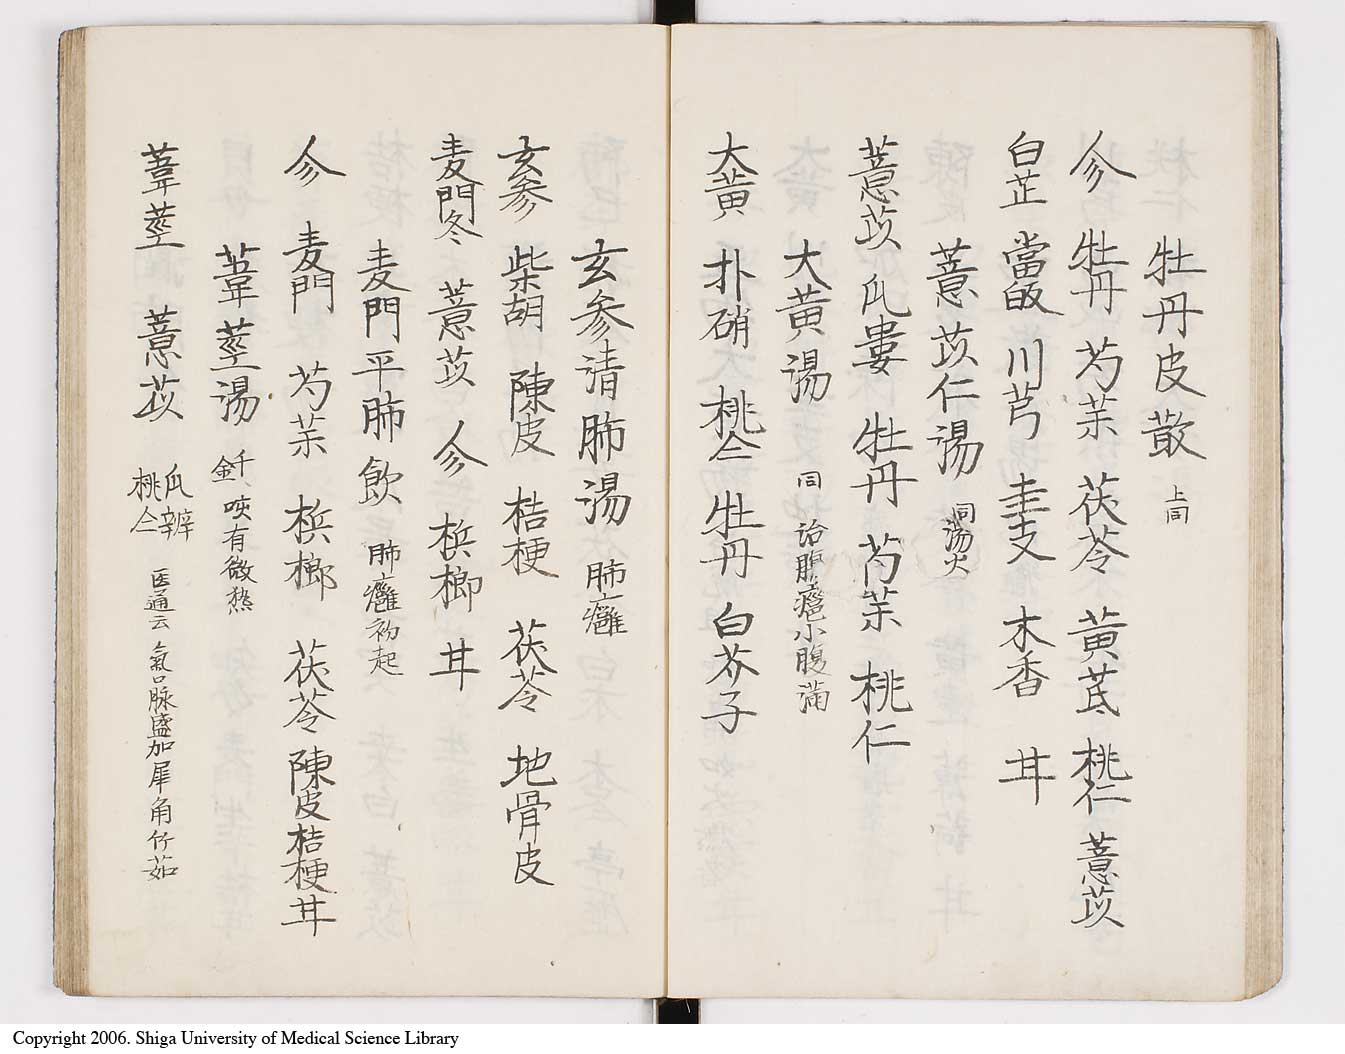 牡丹皮散 上同
参 牡丹 芍薬 茯苓 黄芪 桃仁 薏苡
白芷 當皈 川芎 圭支 木香 甘
薏苡仁湯 同
薏苡 瓜蔞 牡丹 芍薬 桃仁
大黄湯 同 治腸癰小腹満
大黄 朴硝 桃仁 牡丹 白芥子
玄参清肺湯 肺癰
玄参 柴胡 陳皮 桔梗 茯苓 地骨皮
麦門冬 薏苡 参 梹榔 甘
麦門平肺飲 肺癰初起
参 麦門 芍薬 梹榔 茯苓 陳皮 桔梗 甘
葦莖湯 千金 咳有微熱
葦莖 薏苡 瓜辨 桃仁 医通云 氣口脉盛加犀角竹茹
Copyright 2006. Shiga University of Medical Science Library